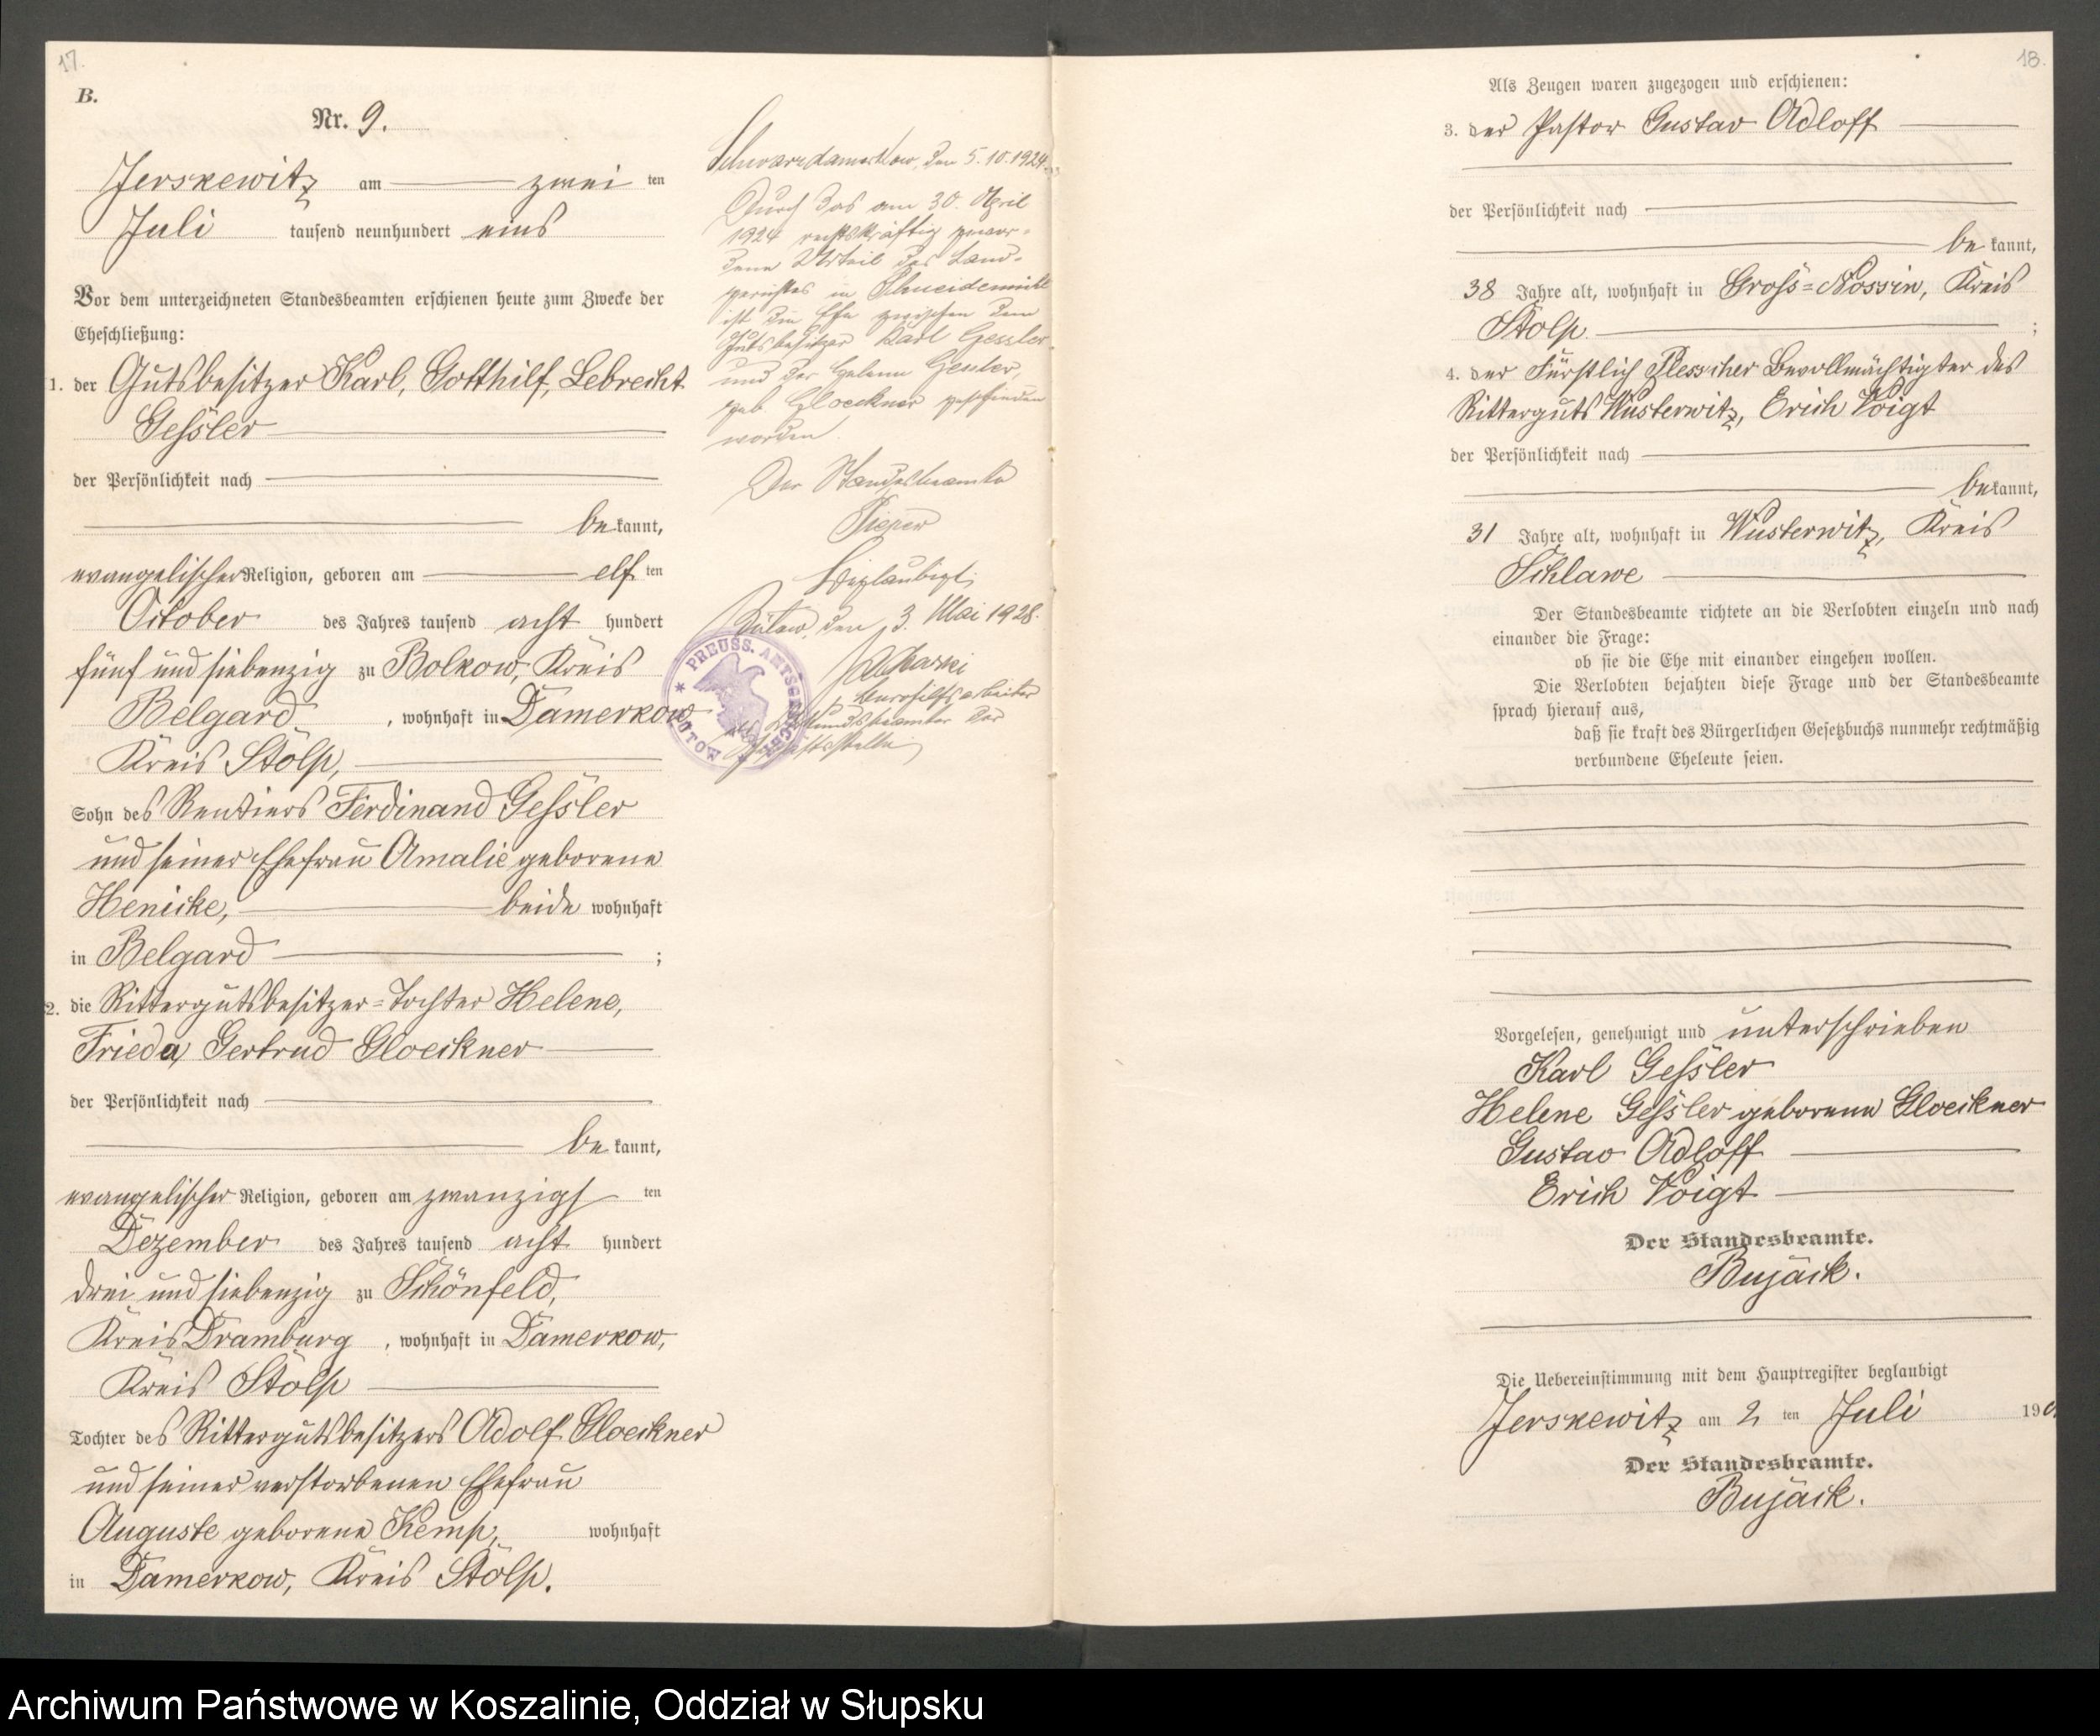 17.
B.
Nr. 9.
Jerskewitz am zwei ten
Juli tausend neunhundert eins
Vor dem unterzeichneten Standesbeamten erschienen heute zum Zwecke der
Eheschließung:
1. der Gutsbesitzer Karl, Gotthilf, Lebrecht
Geßler
der Persönlichkeit nach
be kannt,
evangelischer Religion, geboren am elf ten
October des Jahres tausend acht hundert
fünf und siebenzig zu Bolkow, Kreis
Belgard, wohnhaft in Damerkow
Kreis Stolp,
Sohn des Rentiers Ferdinand Geßler
und seiner Ehefrau Amalie geborene
Henicke, beide wohnhaft
in Belgard ;
2. die Rittergutsbesitzer=Tochter Helene,
Frieda, Gertrud Gloeckner
der Persönlichkeit nach
be kannt,
evangelischer Religion, geboren am zwanzigs ten
Dezember des Jahres tausend acht hundert
drei und siebenzig zu Schönfeld,
Kreis Dramburg, wohnhaft in Damerkow,
Kreis Stolp
Tochter des Rittergutsbesitzers Adolf Gloeckner
und seiner verstorbenen Ehefrau
Auguste geborene Kemp, wohnhaft
in Damerkow, Kreis Stolp.
Schwarzdamerkow, den 5.10.1924.
Durch das am 30. April
1924 rechtskräftig gewor-
dene Urteil des Land-
gerichtes in Schneidemühl
ist die Ehe zwischen dem
Gutsbesitzer Karl Gessler
und der Helene Gessler,
geb. Gloeckner geschieden
worden.
Der Standesbeamte
Beglaubigt:
Bütow, den 3. Mai 1928.
PREUSS. AMTSGERICHT BÜTOW
Bürohilfsarbeiter
der
Geschäftsstelle
18.
Als Zeugen waren zugezogen und erschienen:
3. der Pastor Gustav Adloff
der Persönlichkeit nach
be kannt,
38 Jahre alt, wohnhaft in Gross=Nossin, Kreis
Stolp. ;
4. der Fürstlich Plesscher Bevollmächtigter des
Ritterguts Wusterwitz, Erich Voigt
der Persönlichkeit nach
be kannt,
31 Jahre alt, wohnhaft in Wusterwitz, Kreis
Schlawe
Der Standesbeamte richtete an die Verlobten einzeln und nach
einander die Frage:
ob sie die Ehe mit einander eingehen wollen.
Die Verlobten bejahten diese Frage und der Standesbeamte
sprach hierauf aus,
daß sie kraft des Bürgerlichen Gesetzbuchs nunmehr rechtmäßig
verbundene Eheleute seien.
Vorgelesen, genehmigt und unterschrieben
Karl Geßler
Helene Geßler geborene Gloeckner
Gustav Adloff
Erich Voigt
Der Standesbeamte.
Bujack.
Die Uebereinstimmung mit dem Hauptregister beglaubigt
Jerskewitz am 2 ten Juli 190
Der Standesbeamte.
Bujack.
Archiwum Państwowe w Koszalinie, Oddział w Słupsku